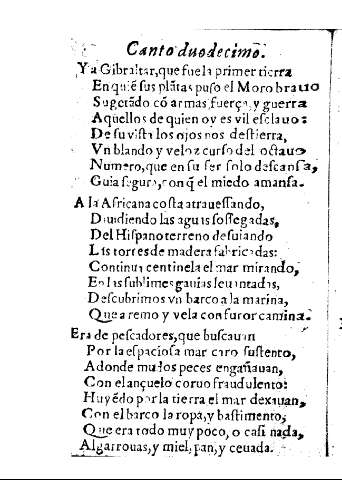 Canto duodecimo.
Ya Gibraltar, que fue la primer tierra
En quiē sus plātas puso el Moro brauo
Sugetādo cō armas, fuerça, y guerra
Aquellos de quien oy es vil esclauo:
De su vista los ojos nos destierra,
Vn blando y veloz curso del octauo
Numero, que en su ser solo descansa,
Guia segura, con q̃ el miedo amansa.
A la Africana costa atrauessando,
Diuidiendo las aguas sossegadas,
Del Hispano terreno desuiando
Las torres de madera fabricadas:
Continua centinela el mar mirando,
En las sublimes gauias leuantadas,
Descubrimos vn barco a la marina,
Que a remo y vela con furor camina.
Era de pescadores, que buscauan
Por la espaciosa mar caro sustento,
Adonde mudos peces engañauan,
Con el ançuelo coruo fraudulento:
Huyēdo por la tierra el mar dexauan,
Con el barco la ropa, y bastimento,
Que era todo muy poco, o casi nada,
Algarrouas, y miel, pan, y ceuada.